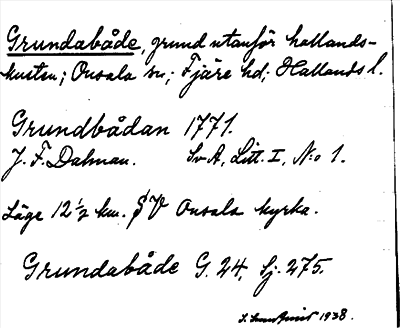 Grundabåde, grund utanför hallands-
kusten; Onsala sn; Fjäre hd; Hallands l.
Grundbådan 1771.
J. F. Dalman. Sv A, Litt. I, N:o 1.
Läge 12 1/2 km. SV Onsala kyrka.
Grundabåde G. 24, Sj. 275.
1938.